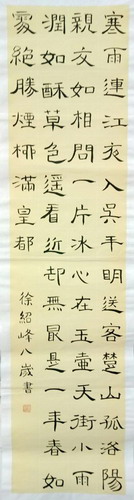 寒雨連江夜入吳平明送客楚山孤洛陽
親友如相問一片冰心在玉壺天街小雨
潤如酥草色遙看近却無最是一年春好
處絕勝煙柳滿皇都
徐紹峰八歲書